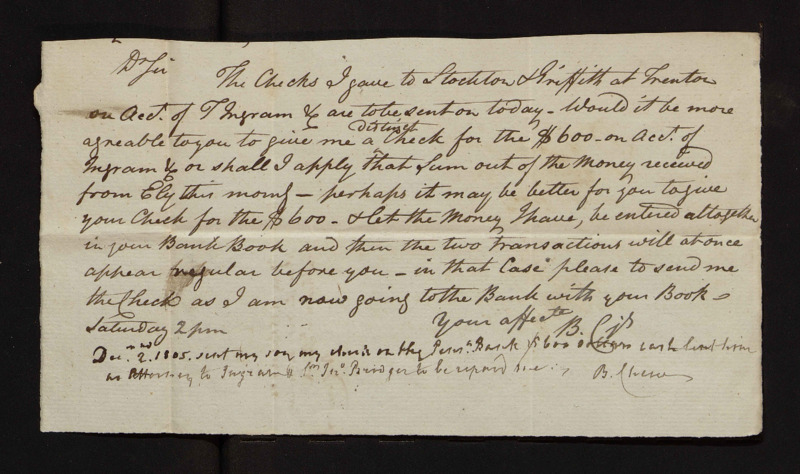 Dr Sir The Checks I gave to Stockton & Griffith at Trenton
on Acct. of T Ingram & are to be sent on today - Would it be more
agreable to you to give me a distinct Check for the $600 - on Acct. of
Ingram & or shall I apply that Sum out of the Money received
from Ely this morng - perhaps it may be better for you to give
your Check for the $600 - & let the Money I have, be entered altogether
in your Bank Book and then the two transactions will at once
appear regular before you - in that Case please to send me
the Check as I am now going to the Bank with your Book -
Saturday 2 pm Your affecte B. C Jr
Decr. 2. 1805. sent my son my check on the Pensa. Bank $600 dollars cash lent him
as Attorney to Ingram to be repaid me B. Chew